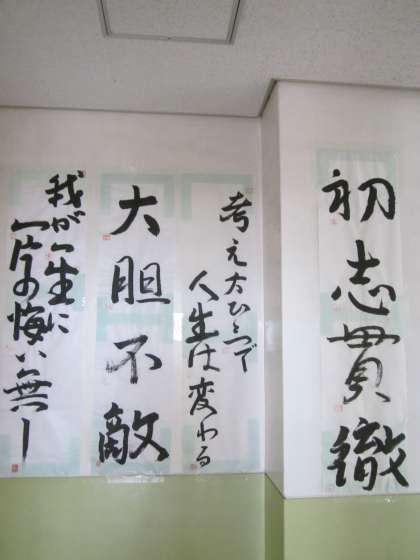 初志貫徹
考え方ひとつで
人生は変わる
大胆不敵
我が一生に
一片の悔い無し